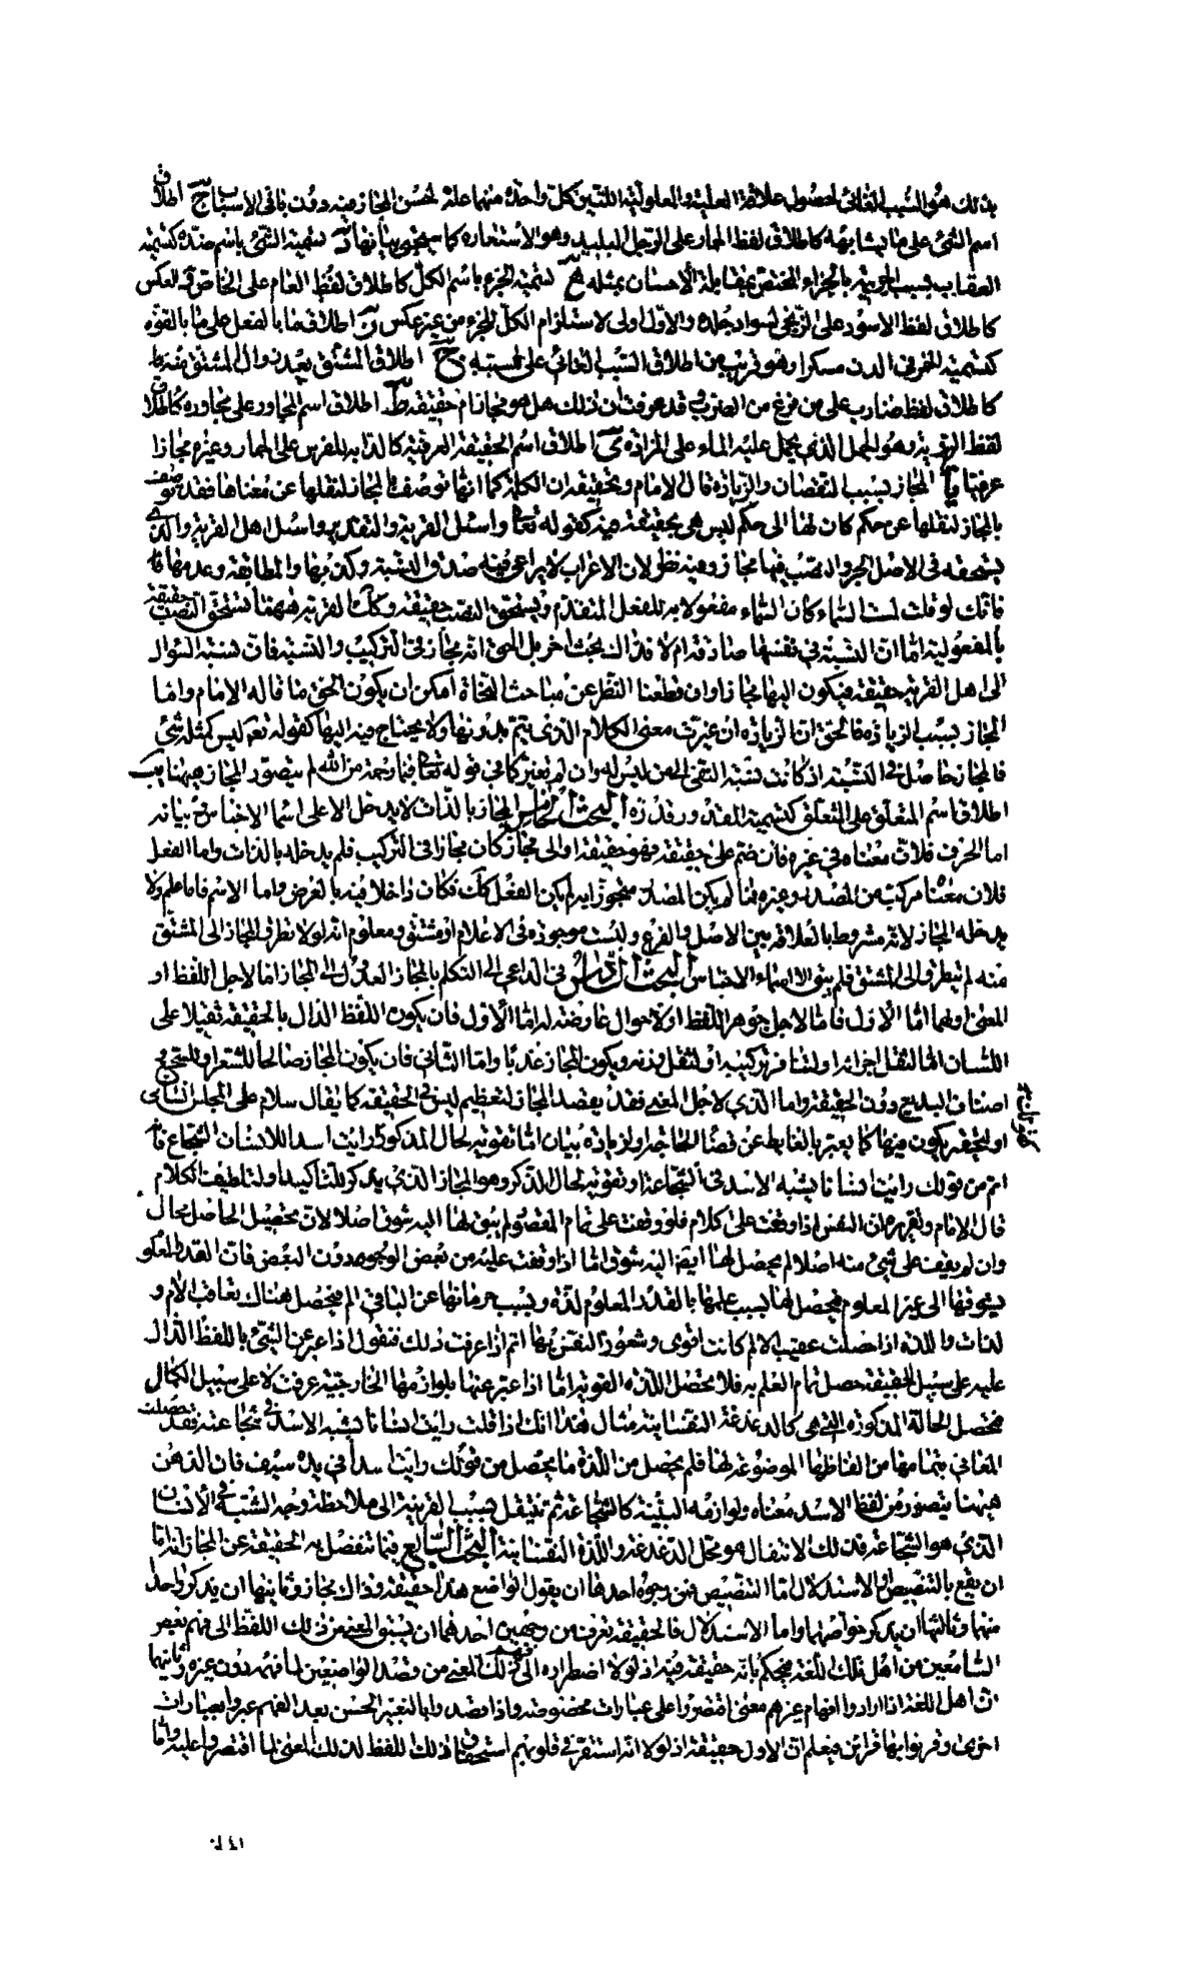 بذلك هو السبب الغائى لحصول علاقة العلية والمعلولية اللتين كل واحدة منهما علة لحسن المجاز فيه دون باقى الاسباب ج اطلاق
اسم الشئ على ما يشابهه كاطلاق لفظ الحمار على الرجل البليد وهو الاستعارة كما سيجئ بيانها د تسمية الشئ باسم ضده كتسمية
العقاب بسبب الجريمة بالجزاء المختص بمقابلة الاحسان بمثله ه تسمية الجزء باسم الكل كاطلاق لفظ العام على الخاص و العكس
كاطلاق لفظ الاسود على الزنجى لسواد جلده والاول اولى لاستلزام الكل الجزء من غير عكس ز اطلاق ما بالفعل على ما بالقوة
كتسمية الخمر فى الدن مسكرا وهو قريب من اطلاق السبب الغائى على مسببه ح اطلاق المشتق بعد زوال المشتق منه
كاطلاق لفظ ضارب على من فرغ من الضرب وقد عرفت ان ذلك هل هو مجاز ام حقيقة ط اطلاق اسم المجاور على مجاوره كاطلاق
لفظ الراوية وهو الجمل الذى يحمل عليه الماء على المزادة ى اطلاق اسم الحقيقة العرفية كالدابة للفرس على الحمار وغيره مجازا
عرفيا يا المجاز بسبب النقصان والزيادة قال الامام وتحقيقه ان الكلمة كما انها توصف بالمجاز لنقلها عن معناها فقد توصف
بالمجاز لنقلها عن حكم كان لها الى حكم ليس هى بحقيقة فيه كقوله تعالى واسئل القرية والتقدير واسئل اهل القرية والذى
يستحقه فى الاصل الجر والنصب فيها مجاز وفيه نظر لان الاعراب لا يراعى فيه صدق النسبة وكذبها والمطابقة وعدمها
فانك لو قلت لمست السماء كان السماء مفعولا به للفعل المتقدم ويستحق النصب حقيقة وكذلك القرية ههنا تستحق النصب حقيقة
بالمفعولية اما ان النسبة فى نفسها صادقة ام لا فذاك بحث اخر بل الحق انه مجاز فى التركيب والنسبة فان نسبة السؤال
الى اهل القرية حقيقة فيكون اليها مجازا وان قطعنا النظر عن مباحث النحاة امكن ان يكون الحق ما قاله الامام واما
المجاز بسبب الزيادة فالحق ان الزيادة ان غيرت معنى الكلام الذى يتم بدونها ولا يحتاج فيه اليها كقوله تعالى ليس كمثله شئ
فالمجاز حاصل فى النسبة اذ كانت نسبة النفى الى من ليس له وان لم تغير كما فى قوله تعالى فبما رحمة من الله لم يتصور المجاز ههنا يب
اطلاق اسم المتعلق على المتعلق كتسمية المقدور قدرة البحث الخامس المجاز بالذات لا يدخل الا على اسماء الاجناس بيانه
اما الحرف فلان معناه فى غيره فان ضم على حقيقة فهو حقيقة او الى مجاز كان مجازا فى التركيب فلم يدخله بالذات واما الفعل
فلان معناه مركب من المصدر وغيره فما لم يكن المصدر متجوزا به لم يكن الفعل كذلك فكان داخلا فيه بالعرض واما الاسم فاما علم ولا
يدخله المجاز لانه مشروط بالعلاقة بين الاصل والفرع وليست موجودة فى الاعلام او مشتق ومعلوم انه لولا تطرق المجاز الى المشتق
منه لم يتطرق الى المشتق فلم يبق الا اسماء الاجناس البحث السادس فى الداعى الى التكلم بالمجاز العدول الى المجاز اما لاجل اللفظ او
المعنى او لهما اما الاول فاما لاجل جوهر اللفظ او لاحوال عارضة له اما الاول فان يكون اللفظ الدال بالحقيقة ثقيلا على
اللسان اما لثقل اجزائه او لتنافر تركيبه او لثقل وزنه ويكون المجاز عذبا واما الثانى فان يكون المجاز صالحا للشعر او السجع و
اصناف البديع دون الحقيقة واما الذى لاجل المعنى فقد يقصد المجاز لتعظيم ليس فى الحقيقة كما يقال سلام على المجلس السامى
او لتحقير يكون فيها كما يعبر بالغائط عن قضاء الحاجة او لزيادة بيان اما تقوية لحال المذكور كرايت اسدا للانسان الشجاع
اتم من قولك رايت انسانا يشبه الاسد فى الشجاعة او تقوية لحال الذكر وهو المجاز الذى يذكر للتاكيد او لتلطيف الكلام
قال الامام وتقريره ان النفس اذا وقفت على كلام فلو وقفت على تمام المقصود لم يبق لها اليه شوق اصلا لان تحصيل الحاصل محال
وان لم يقف على شئ منه اصلا لم يحصل لها ايضا اليه شوق اما اذا وقفت عليه من بعض الوجوه دون البعض فان القدر المعلوم
يشوقها الى غير المعلوم فيحصل لها بسبب علمها بالقدر المعلوم لذة وبسبب حرمانها عن الباقى الم فيحصل هناك تعاقب الام و
لذات واللذة اذا حصلت عقيب الالم كانت اقوى وشعور النفس بها اتم اذا عرفت ذلك فنقول اذا عبر عن الشئ باللفظ الدال
عليه على سبيل الحقيقة حصل تمام العلم به فلا يحصل اللذة القوية اما اذا عبر عنها بلوازمها الخارجية عرفت لا على سبيل الكمال
فحصل الحالة المذكورة التى هى كالدغدغة النفسانية مثال هذا انك اذا قلت رايت انسانا يشبه الاسد فى شجاعته فقد حصلت
المعانى بتمامها من الفاظها الموضوعة لها فلم يحصل من اللذة ما يحصل من قولك رايت اسدا فى يده سيف فان الذهن
ههنا يتصور من لفظ الاسد معناه ولوازمه البينة كالشجاعة ثم ينتقل بسبب القرينة الى ملاحظة وجه الشبه فى الانسان
الذى هو الشجاعة فذلك الانتقال هو محل الدغدغة واللذة النفسانية البحث السابع فيما تنفصل به الحقيقة عن المجاز
ان يقع بالتنصيص او الاستدلال اما التنصيص فمن وجوه احدها ان يقول الواضع هذا حقيقة وذاك مجاز وثانيها ان يذكر واحدا
منهما وثالثها ان يذكر خواصهما واما الاستدلال فالحقيقة تعرف من وجهين احدهما ان يسبق المعنى من ذلك اللفظ الى فهم بعض
السامعين من اهل تلك اللغة فيحكم بانه حقيقة فيه اذ لولا اضطراره الى فهم ذلك المعنى من قصد الواضعين لما فهمه دون غيره وثانيهما
ان اهل اللغة اذا ارادوا افهام غيرهم معنى اقتصروا على عبارات مخصوصة واذا قصدوا بالتعبير الحسن بعد الفهم عبروا بعبارات
اخرى وقرنوا بها قراين فيعلم ان الاول حقيقة اذ لولا انه استقر فى قلوبهم استحقاق ذلك اللفظ لذلك المعنى لما اقتصروا عليه واما